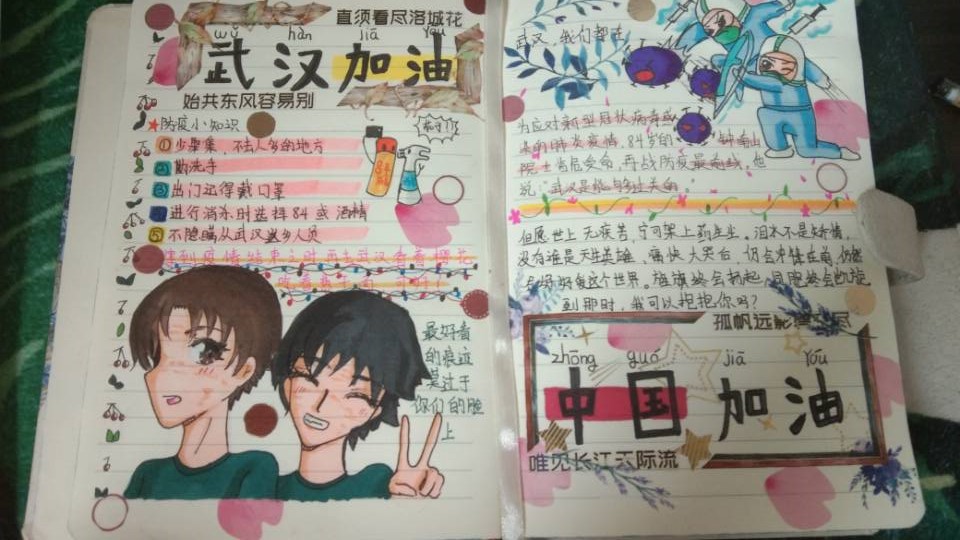 直须看尽洛城花
wǔ hàn jiā Yóu
武汉加油
始共东风容易别
★防疫小知识
① 少聚集，不去人多的地方
② 勤洗手
③ 出门记得戴口罩
④ 进行消杀时选择84或酒精
⑤ 不隐瞒从武汉返乡人员
等到疫情结束之时再去武汉看看樱花
84
最好看
的痕迹
莫过于
你们的脸
上
武汉，我们都在
为应对新型冠状病毒感
染的肺炎疫情，84岁的钟南山
院士当启受命，再战防疫最前线，他
说：武汉是能够过关的。
但愿世上无疾苦，宁可架上药生尘。泪水不是矫情，
没有谁是天生英雄，痛快大哭后，仍会冲锋在前，仍然
会好好爱这个世界。旗旗终会扬起，同胞终会凯旋
到那时，我可以抱抱你吗？
孤帆远影碧空尽
zhōng guó jiā Yóu
中国加油
唯见长江天际流